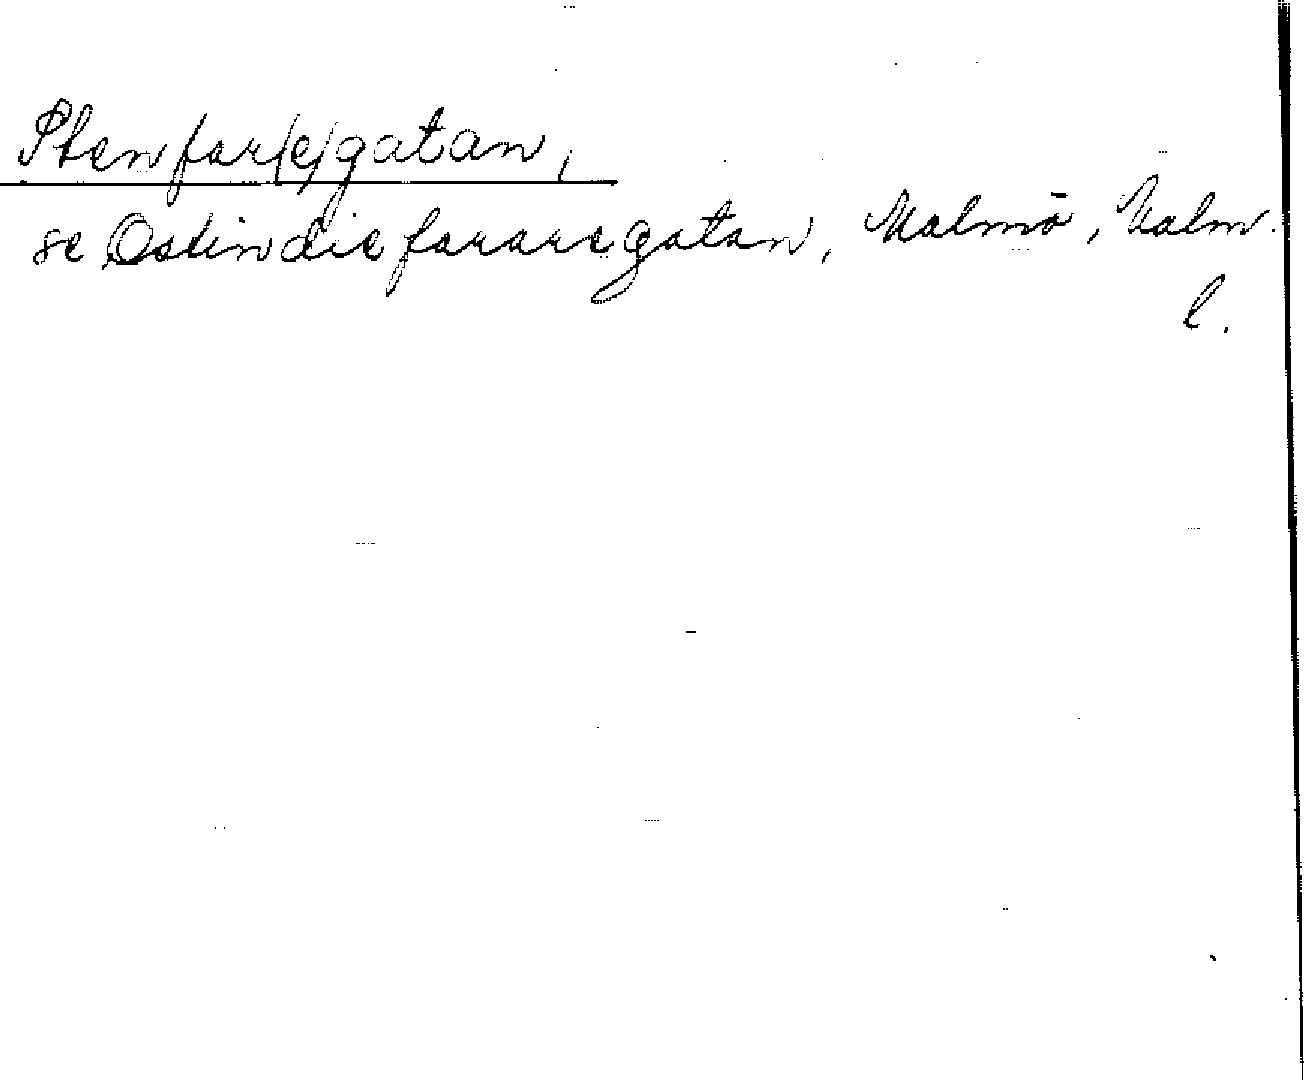 Stenfar/e/gatan,
se Ostindiefararegatan, Malmö, Malm.
l.